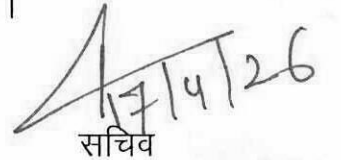 17/4/26
सचिव